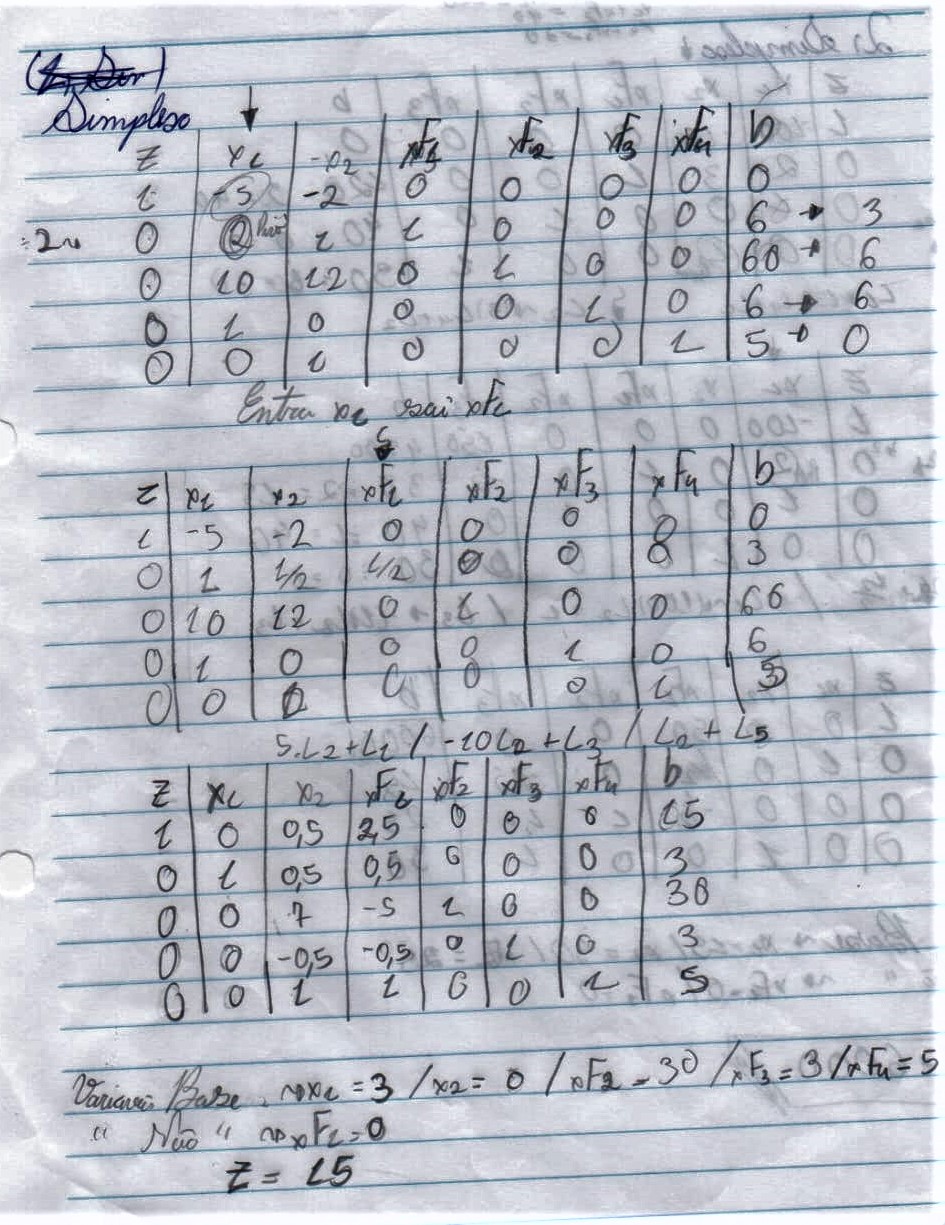 Simplexo
Z | x1 | -x2 | xF1 | xF2 | xF3 | xF4 | b
1 | -5 | -2 | 0 | 0 | 0 | 0 | 0
÷2 → 0 | 2 | 1 | 1 | 0 | 0 | 0 | 6 → 3
0 | 10 | 12 | 0 | 1 | 0 | 0 | 60 → 6
0 | 1 | 0 | 0 | 0 | 1 | 0 | 6 → 6
0 | 0 | 1 | 0 | 0 | 0 | 1 | 5 → 0
Entra x1 sai xF1
Z | x1 | x2 | xF1 | xF2 | xF3 | xF4 | b
1 | -5 | -2 | 0 | 0 | 0 | 0 | 0
0 | 1 | 1/2 | 1/2 | 0 | 0 | 0 | 3
0 | 10 | 12 | 0 | 1 | 0 | 0 | 60
0 | 1 | 0 | 0 | 0 | 1 | 0 | 6
0 | 0 | 1 | 0 | 0 | 0 | 1 | 5
5.L2+L1 / -10L2+L3 / L2+L5
Z | x1 | x2 | xF1 | xF2 | xF3 | xF4 | b
1 | 0 | 0,5 | 2,5 | 0 | 0 | 0 | 15
0 | 1 | 0,5 | 0,5 | 0 | 0 | 0 | 3
0 | 0 | 7 | -5 | 1 | 0 | 0 | 30
0 | 0 | -0,5 | -0,5 | 0 | 1 | 0 | 3
0 | 0 | 1 | 1 | 0 | 0 | 1 | 5
Base → x1 = 3 / x2 = 0 / xF2 = 30 / xF3 = 3 / xF4 = 5
" Não " → xF1 = 0
Z = 15